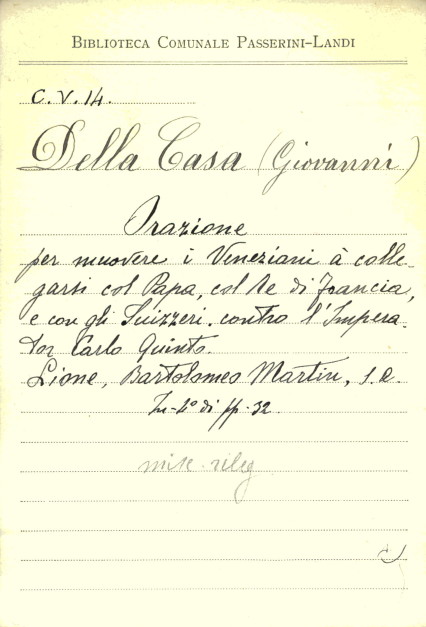 BIBLIOTECA COMUNALE PASSERINI-LANDI
C. V. 14.
Della Casa (Giovanni)
Orazione
per muovere i Veneziani à colle-
garsi col Papa, col Re di Francia,
e con gli Suizzeri contro l'Impera-
tor Carlo Quinto.
Lione, Bartolomeo Martin, s. a.
In-4° di pp. 32.
misc. rileg